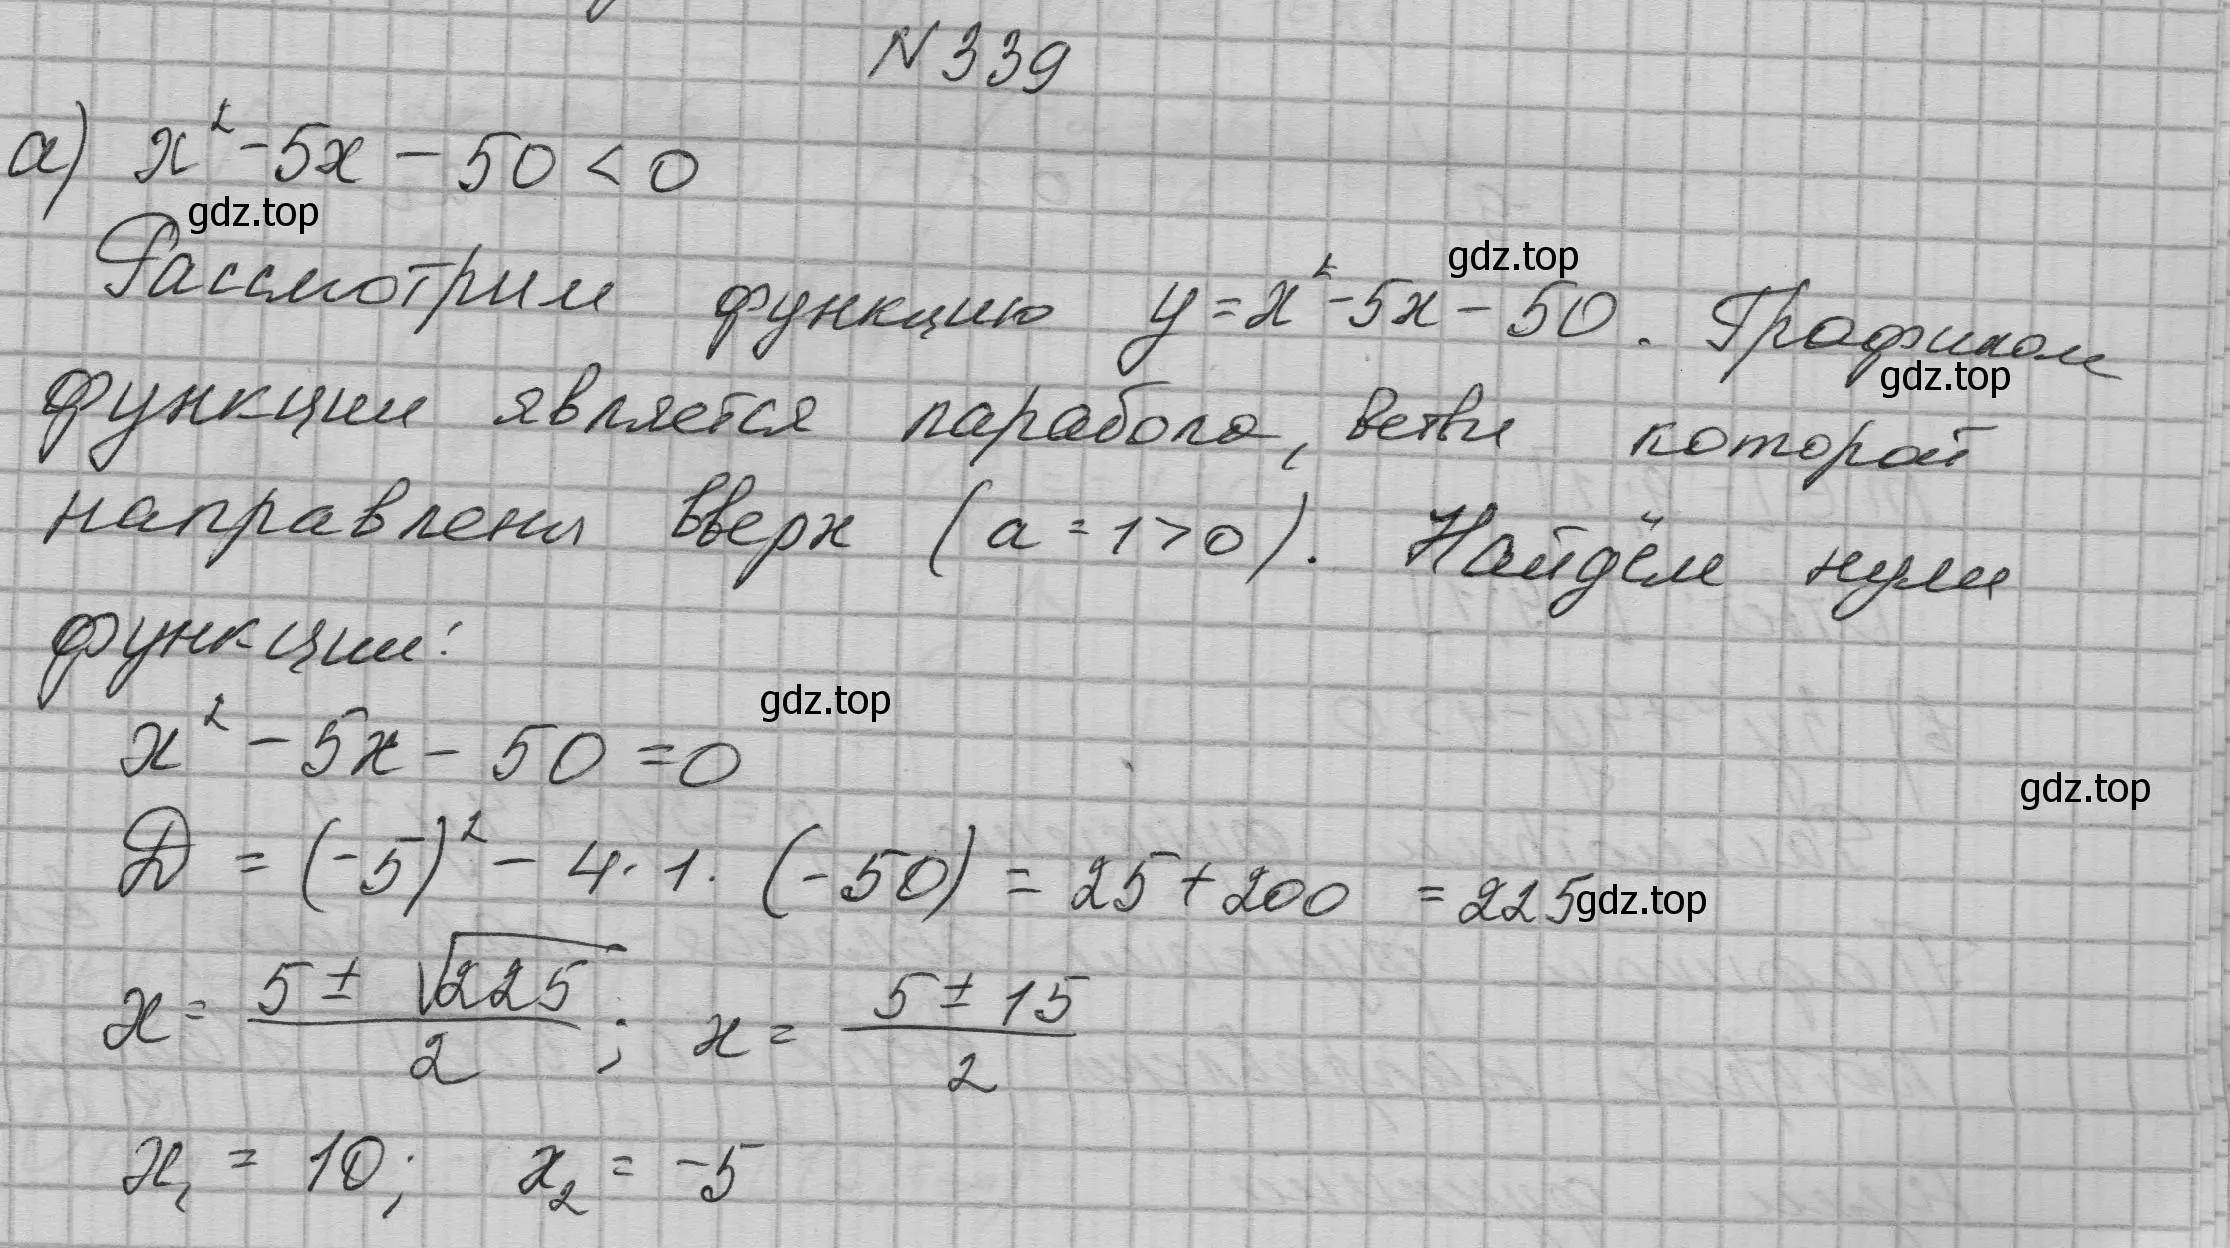 N339
а) x² - 5x - 50 < 0
gdz.top
gdz.top
Рассмотрим функцию y = x² - 5x - 50. Графиком
gdz.top
функции является парабола, ветви которой
направлены вверх (a = 1 > 0). Найдём нули
функции:
gdz.top
x² - 5x - 50 = 0
gdz.top
D = (-5)² - 4 · 1 · (-50) = 25 + 200 = 225
gdz.top
x = (5 ± √225)/2; x = (5 ± 15)/2
x₁ = 10; x₂ = -5